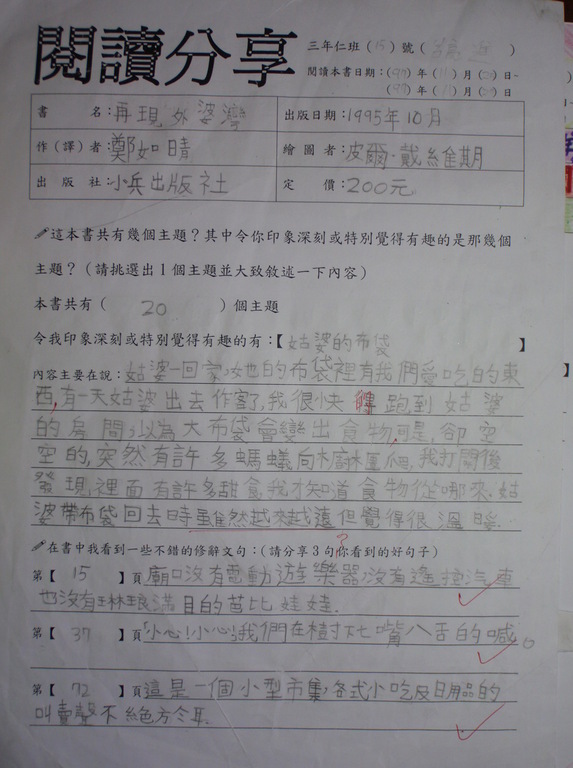 閱讀分享
三年仁班(15)號( )
閱讀本書日期:(97)年(11)月( )日~
(97)年(11)月( )日
書 名:再現外婆灣
出版日期:1995年10月
作(譯)者:鄭如晴
繪圖者:皮爾 戴維期
出版社:小兵出版社
定 價:200元
這本書共有幾個主題?其中令你印象深刻或特別覺得有趣的是那幾個
主題?(請挑選出1個主題並大致敘述一下內容)
本書共有( 20 )個主題
令我印象深刻或特別覺得有趣的有:【姑婆的布袋 】
內容主要在說:姑婆一回家,她的布袋裡有我們愛吃的東
西,有一天姑婆出去作客了,我很小快 跑到姑婆
的房間,以為大布袋會變出食物,可是,卻空
空的,突然有許多螞蟻向木廚櫃爬,我打開後
發現,裡面有許多甜食,我才知道食物從哪來.姑
婆帶布袋回去時雖然越來越遠但覺得很溫暖.
在書中我看到一些不錯的修辭文句:(請分享3句你看到的好句子)
第【 15 】頁廟口沒有電動遊樂器,沒有遙控汽車
也沒有琳琅滿目的芭比娃娃.
第【 37 】頁「小心!小心!」我們在樹下七嘴八舌的喊。
第【 72 】頁這是一個小型市集,各式小吃及日用品的
叫賣聲不絕於耳.